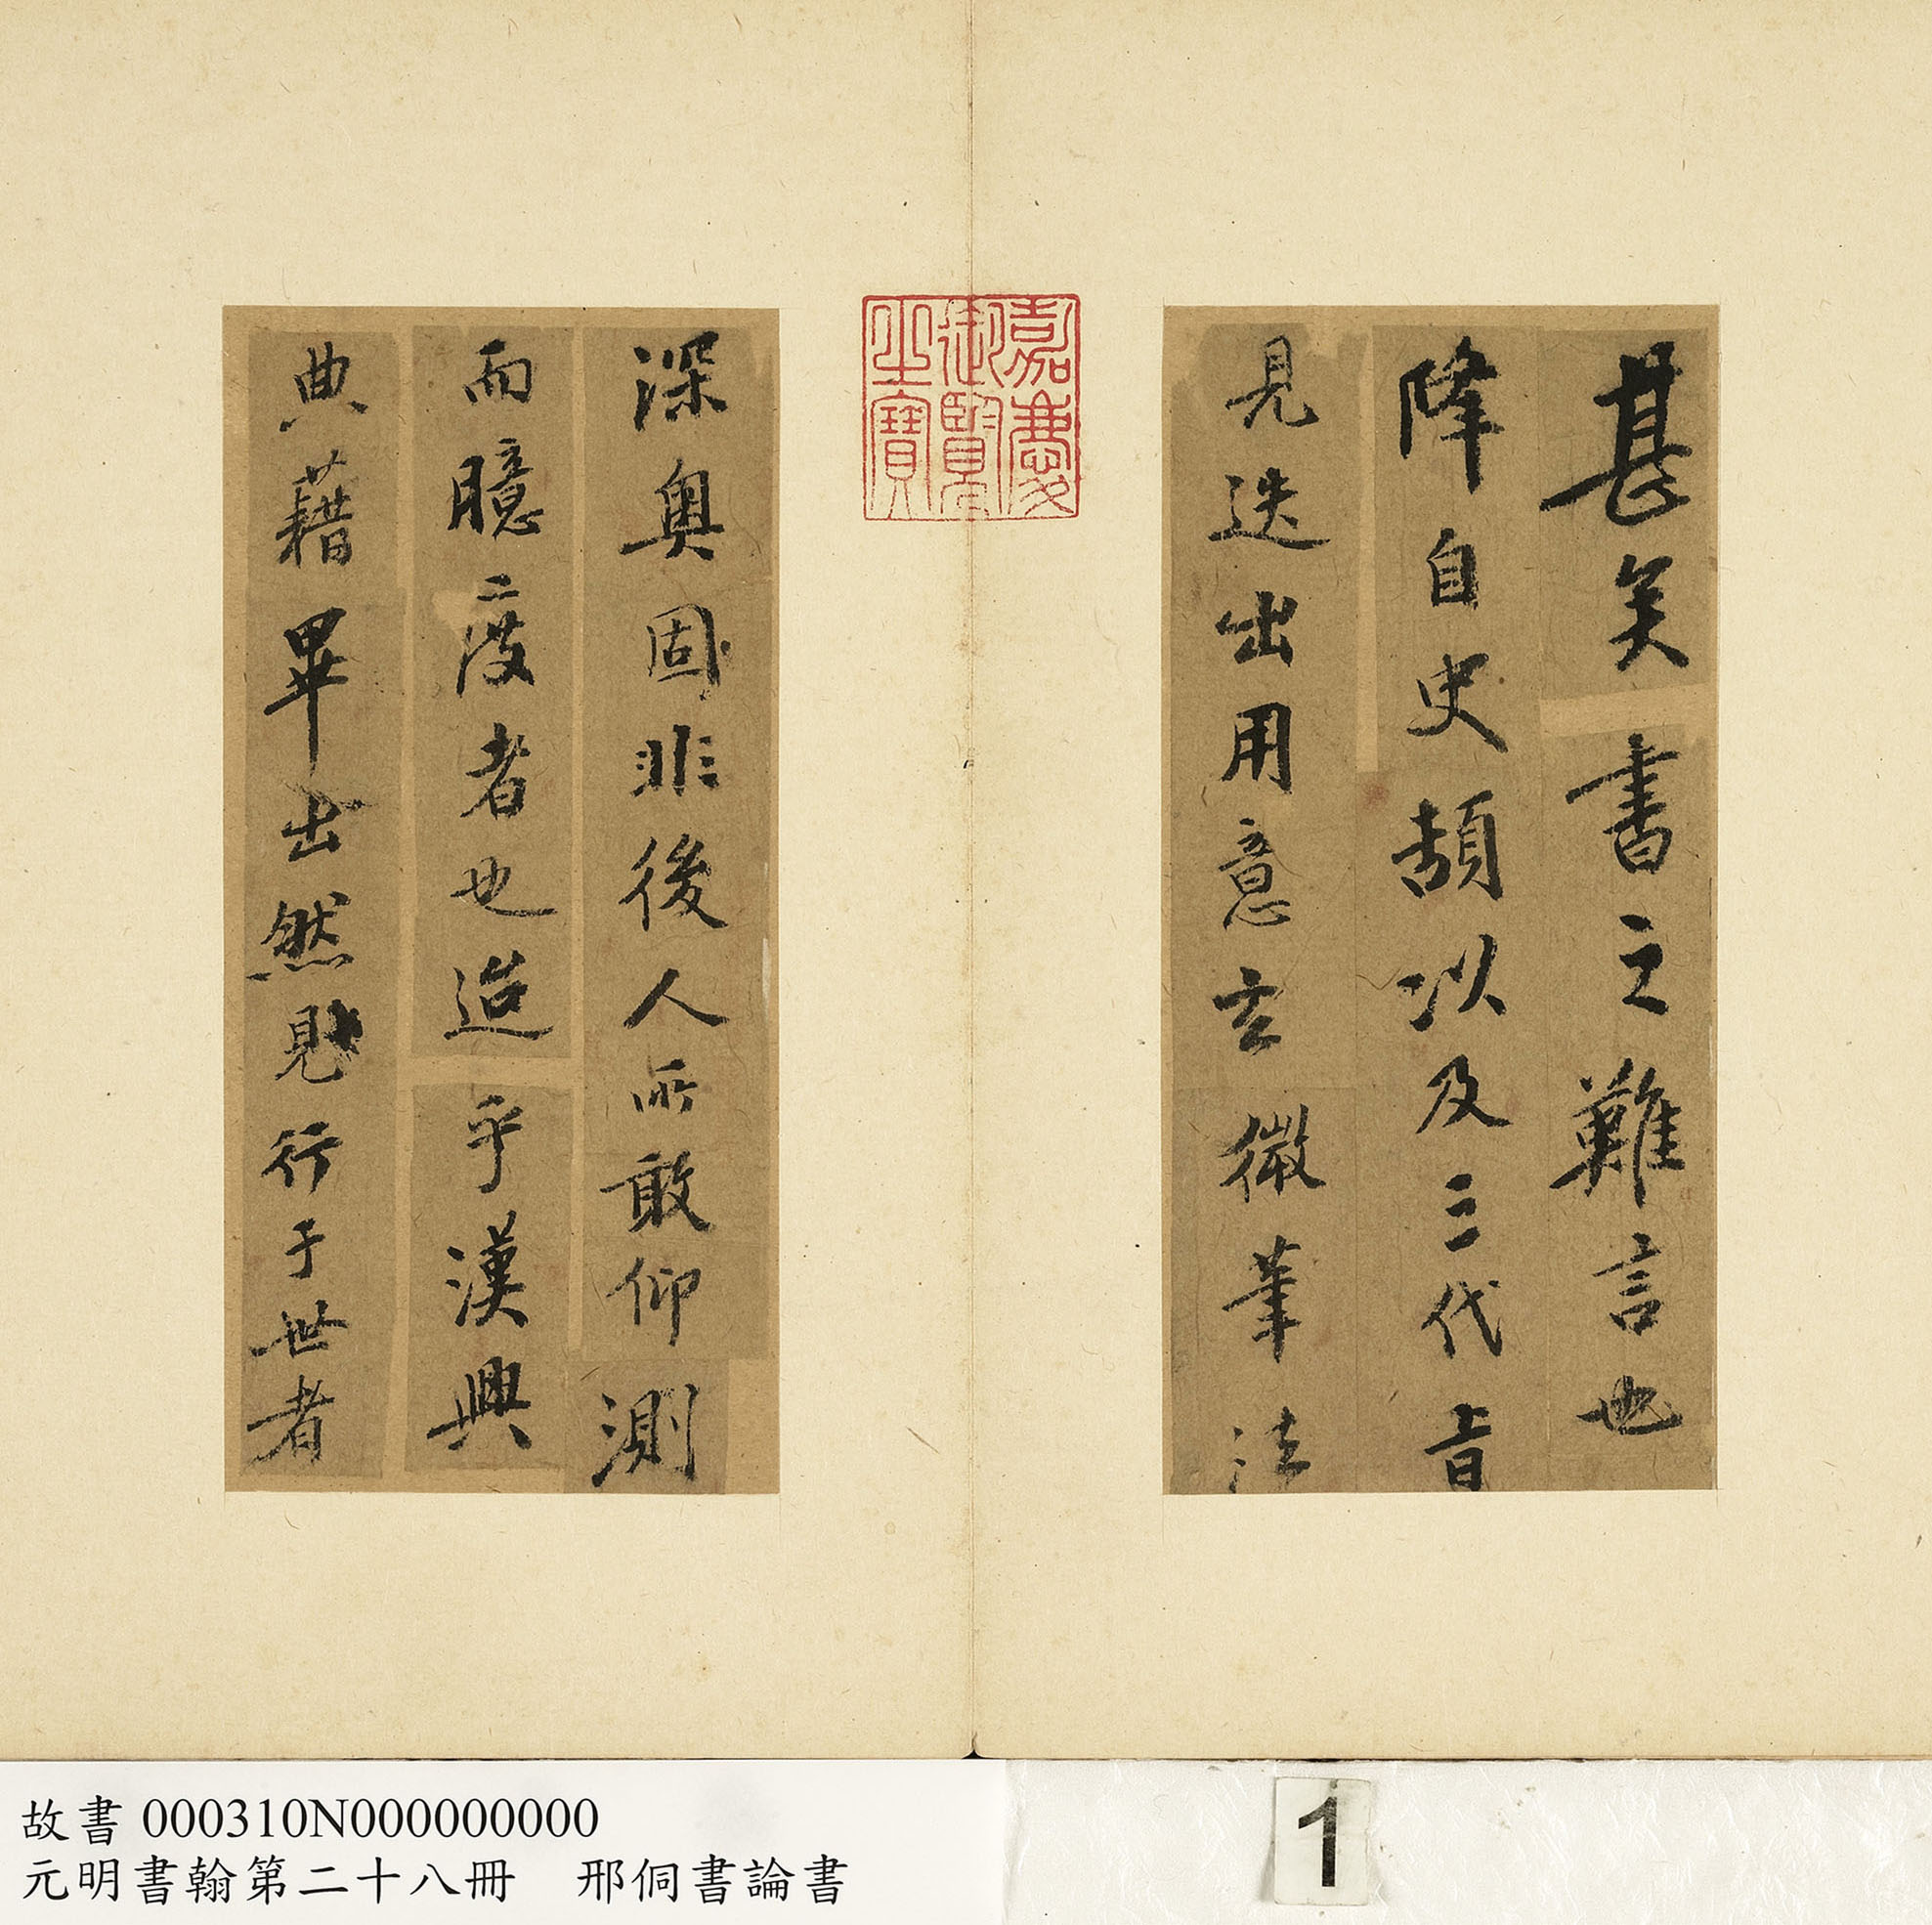 甚矣書之難言也
降自史頡以及三代旹
見迭出用意玄微筆法
深奧固非後人所敢仰測
而臆度者也迨乎漢興
典藉畢出然見行于世者
嘉慶御覽之寶
故書 000310N000000000
元明書翰第二十八冊 邢侗書論書
1